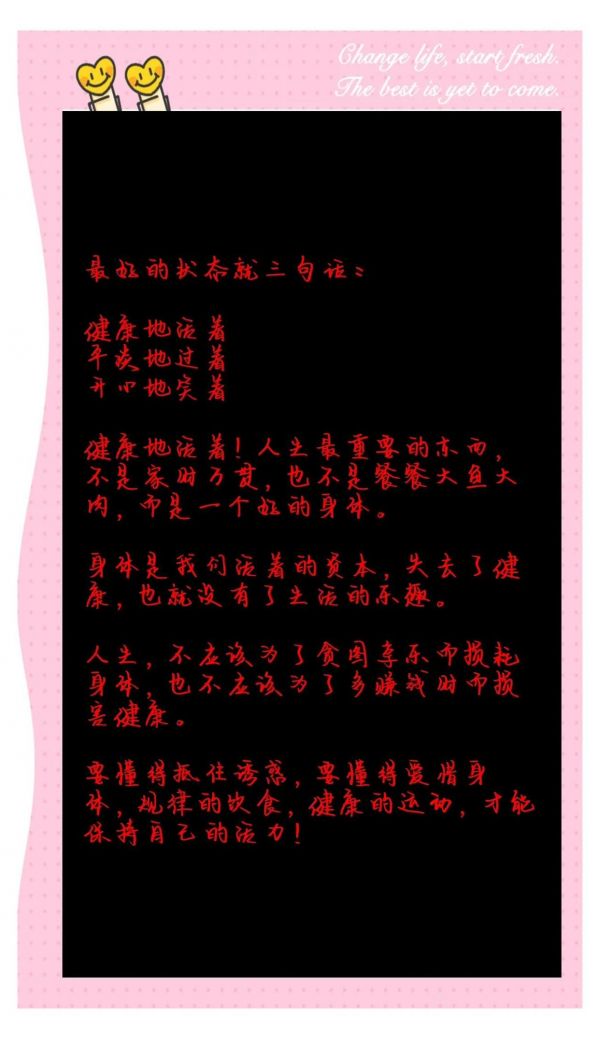 Change life, start fresh.
The best is yet to come.
最好的状态就三句话：
健康地活着
平淡地过着
开心地笑着
健康地活着！人生最重要的东西，
不是家财万贯，也不是餐餐大鱼大
肉，而是一个好的身体。
身体是我们活着的资本，失去了健
康，也就没有了生活的乐趣。
人生，不应该为了贪图享乐而损耗
身体，也不应该为了多赚钱财而损
害健康。
要懂得抵住诱惑，要懂得爱惜身
体，规律的饮食，健康的运动，才能
保持自己的活力！